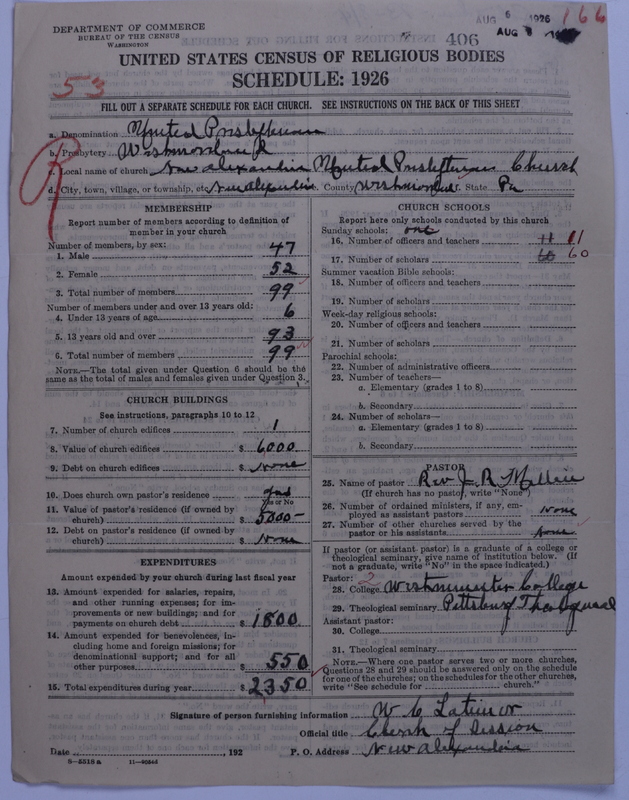 DEPARTMENT OF COMMERCE
BUREAU OF THE CENSUS
WASHINGTON
AUG 6 1926 166
AUG
406
UNITED STATES CENSUS OF RELIGIOUS BODIES
SCHEDULE: 1926
53
FILL OUT A SEPARATE SCHEDULE FOR EACH CHURCH. SEE INSTRUCTIONS ON THE BACK OF THIS SHEET
R
a. Denomination United Presbyterian
b. Presbytery Westmoreland
c. Local name of church New Alexandria United Presbyterian Church
d. City, town, village, or township, etc. New Alexandria County Westmoreland State Pa
MEMBERSHIP
Report number of members according to definition of
member in your church
Number of members, by sex:
1. Male 47
2. Female 52
3. Total number of members 99
Number of members under and over 13 years old:
4. Under 13 years of age 6
5. 13 years old and over 93
6. Total number of members 99
NOTE.—The total given under Question 6 should be the
same as the total of males and females given under Question 3.
CHURCH BUILDINGS
See instructions, paragraphs 10 to 12
7. Number of church edifices 1
8. Value of church edifices $ 6000
9. Debt on church edifices $ None
10. Does church own pastor's residence yes
Yes or No
11. Value of pastor's residence (if owned by
church) $ 5000-
12. Debt on pastor's residence (if owned by
church) $ None
EXPENDITURES
Amount expended by your church during last fiscal year
13. Amount expended for salaries, repairs,
and other running expenses; for im-
provements or new buildings; and for
payments on church debt $ 1800
14. Amount expended for benevolences, in-
cluding home and foreign missions; for
denominational support; and for all
other purposes $ 550
15. Total expenditures during year $ 2350
CHURCH SCHOOLS
Report here only schools conducted by this church
Sunday schools: one
16. Number of officers and teachers 11 11
17. Number of scholars 60 60
Summer vacation Bible schools:
18. Number of officers and teachers
19. Number of scholars
Week-day religious schools:
20. Number of officers and teachers
21. Number of scholars
Parochial schools:
22. Number of administrative officers
23. Number of teachers—
a. Elementary (grades 1 to 8)
b. Secondary
24. Number of scholars—
a. Elementary (grades 1 to 8)
b. Secondary
PASTOR
25. Name of pastor Rev J. R.
(If church has no pastor, write "None")
26. Number of ordained ministers, if any, em-
ployed as assistant pastors None
27. Number of other churches served by the
pastor or his assistants None
If pastor (or assistant pastor) is a graduate of a college or
theological seminary, give name of institution below. (If
not a graduate, write "No" in the space indicated.)
Pastor: 2
28. College Westminster College
29. Theological seminary Pittsburg Theological
Assistant pastor:
30. College
31. Theological seminary
NOTE.—Where one pastor serves two or more churches,
Questions 28 and 29 should be answered only on the schedule
for one of the churches; on the schedules for the other churches,
write "See schedule for church."
Signature of person furnishing information W C Latimor
Official title Clerk of Session
Date , 192 P. O. Address New Alexandria
8-5518 a